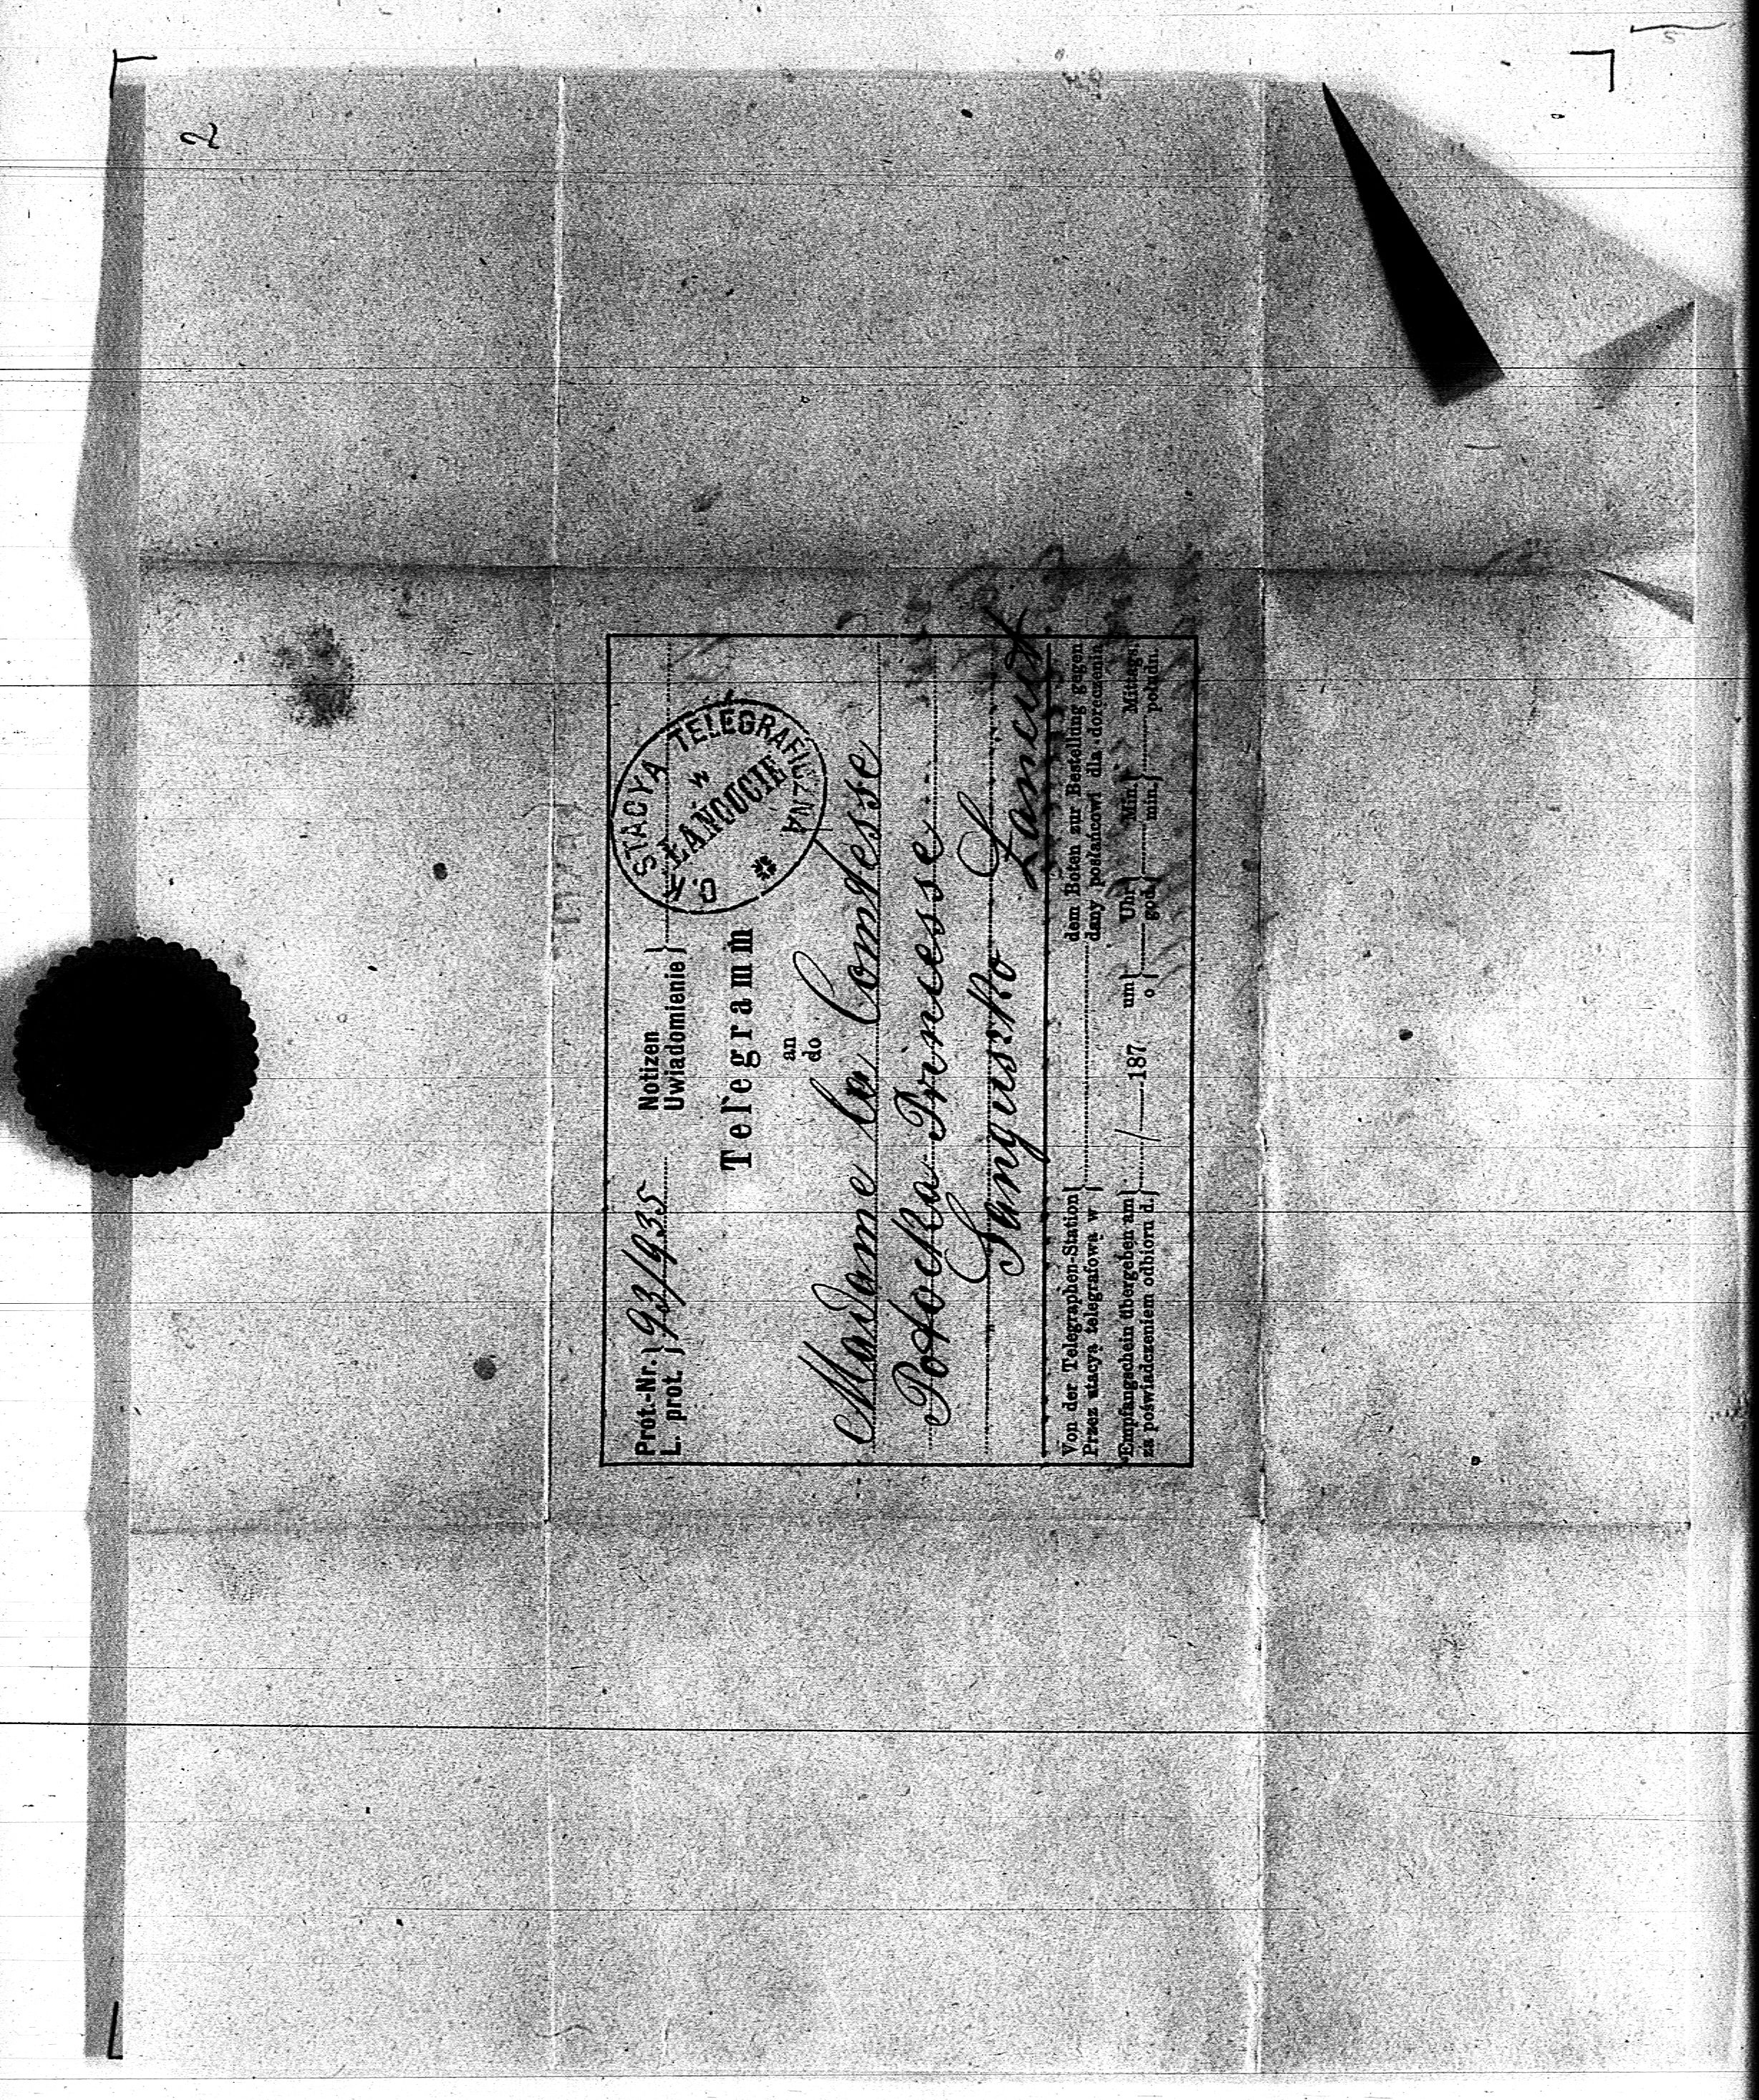 2
Prot.-Nr. } 93/1935
L. prot. }
Notizen }
Uwiadomienie }
C. K. STACYA TELEGRAFICZNA
w
ŁAŃCUCIE
Telegramm
an
do
Madame la Comtesse
Potocka Princesse
Sanguszko
Łancut
Von der Telegraphen-Station } dem Boten zur Bestellung gegen
Przez stacyą telegrafową w } dany posłańcowi dla doręczenia
Empfangschein übergeben am } / 187 um } Uhr } Min. } Mittags.
za poświadczeniem odbioru d. } o } god. } min. } połudn.